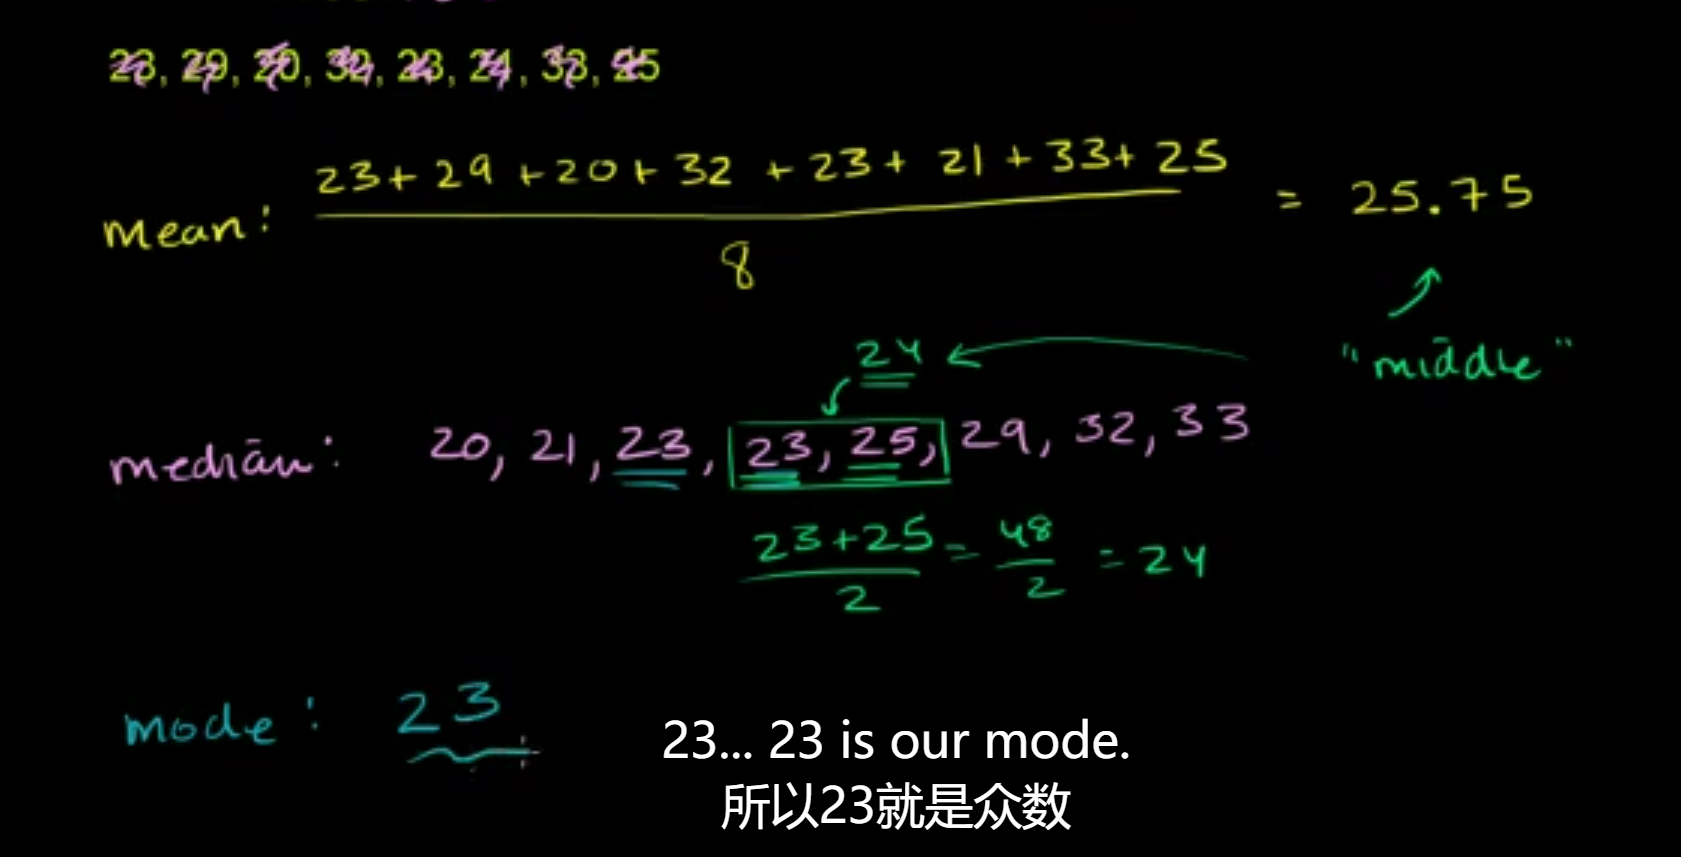 23, 29, 20, 32, 23, 21, 33, 25
23+29+20+32+23+21+33+25
mean:
= 25.75
8
24
"middle"
median: 20, 21, 23, 23, 25, 29, 32, 33
23+25
2
=
48
2
=24
mode: 23
23... 23 is our mode.
所以23就是众数